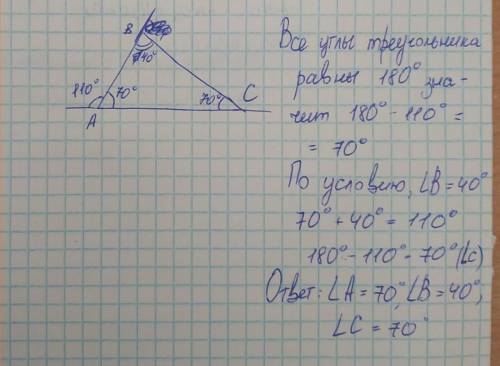 B
140°
110°
70°
70°
C
A
Все углы треугольника
равны 180° зна-
чит 180° - 110° =
= 70°
По условию, ∠B = 40°
70° + 40° = 110°
180° - 110° - 70° (∠C)
Ответ: ∠A = 70°, ∠B = 40°,
∠C = 70°